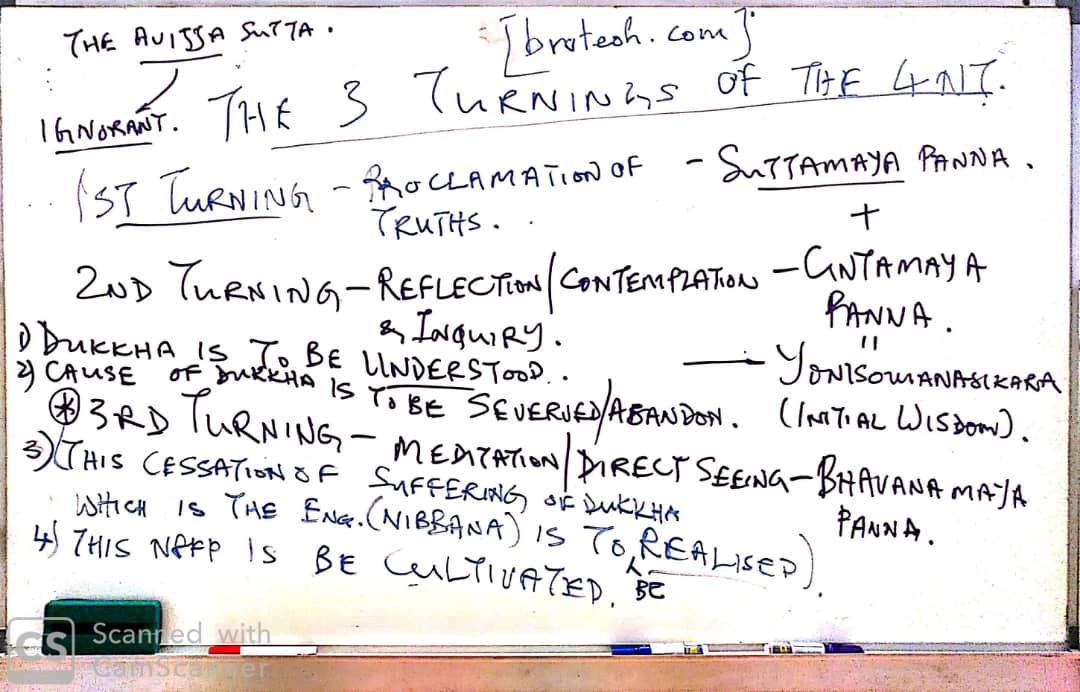 THE AVIJJA SUTTA.
[broteoh.com]
IGNORANT.
THE 3 TURNINGS OF THE 4NT.
1ST TURNING - PROCLAMATION OF - SUTTAMAYA PANNA.
TRUTHS.
+
2ND TURNING - REFLECTION/CONTEMPLATION - CINTAMAYA
& INQUIRY. PANNA.
"
1) DUKKHA IS TO BE UNDERSTOOD.. — YONISOMANASIKARA
2) CAUSE OF DUKKHA IS TO BE SEVERUED/ABANDON. (INITIAL WISDOM).
* 3RD TURNING - MEDITATION/DIRECT SEEING - BHAVANA MAYA
PANNA.
3) (THIS CESSATION OF SUFFERING OF DUKKHA
WHICH IS THE ENG. (NIBBANA) IS TO BE REALISED)
4) THIS N8FP IS BE CULTIVATED.
CS Scanned with
CamScanner